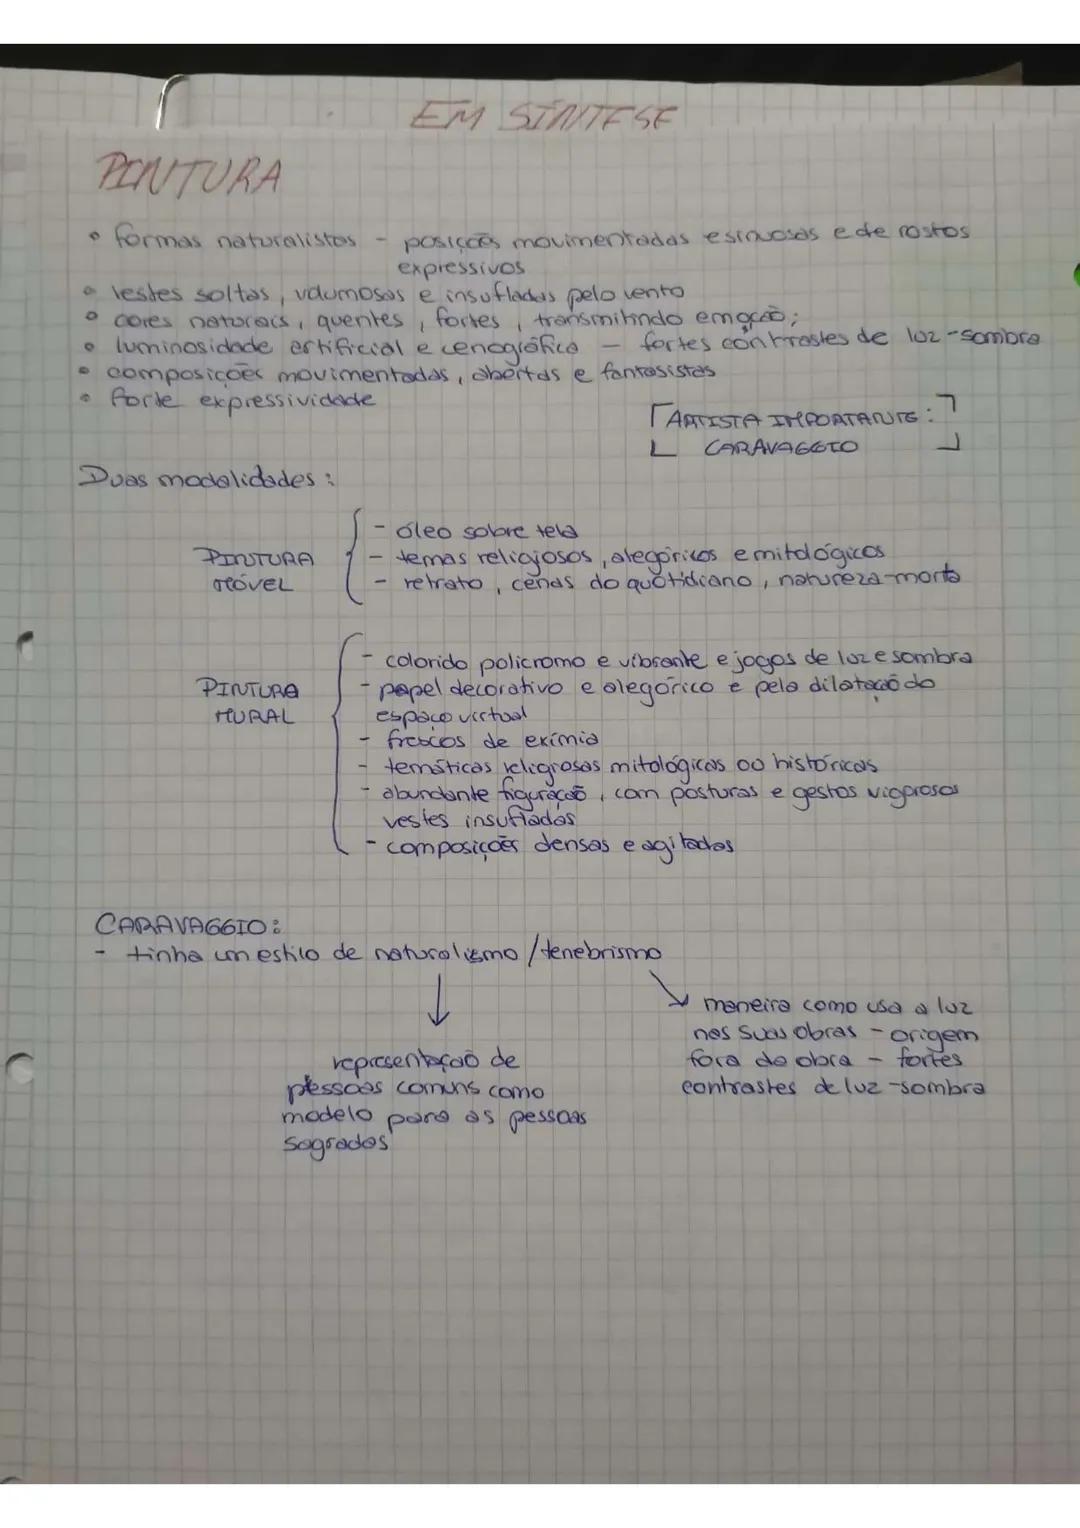 EM SÍNTESE
PINTURA
• formas naturalistas - posições movimentadas e sinuosas e de rostos
expressivos
• vestes soltas, volumosas e insufladas pelo vento
• cores naturais, quentes, fortes, transmitindo emoção;
• luminosidade artificial e cenográfica - fortes contrastes de luz-sombra
• composições movimentadas, abertas e fantasistas
• forte expressividade
[ARTISTA IMPORTANTE:
CARAVAGGIO]
Duas modalidades:
- óleo sobre tela
PINTURA - temas religiosos, alegóricos e mitológicos
MÓVEL - retrato, cenas do quotidiano, natureza-morta
- colorido policromo e vibrante e jogos de luz e sombra
PINTURA - papel decorativo e alegórico e pela dilatação do
MURAL espaço virtual
- frescos de exímia
- temáticas religiosas mitológicas ou históricas
- abundante figuração, com posturas e gestos vigorosos
vestes insufladas
- composições densas e agitadas
CARAVAGGIO:
- tinha um estilo de naturalismo / tenebrismo
maneira como usa a luz
nas suas obras - origem
representação de fora da obra - fortes
pessoas comuns como contrastes de luz-sombra
modelo para as pessoas
sagradas